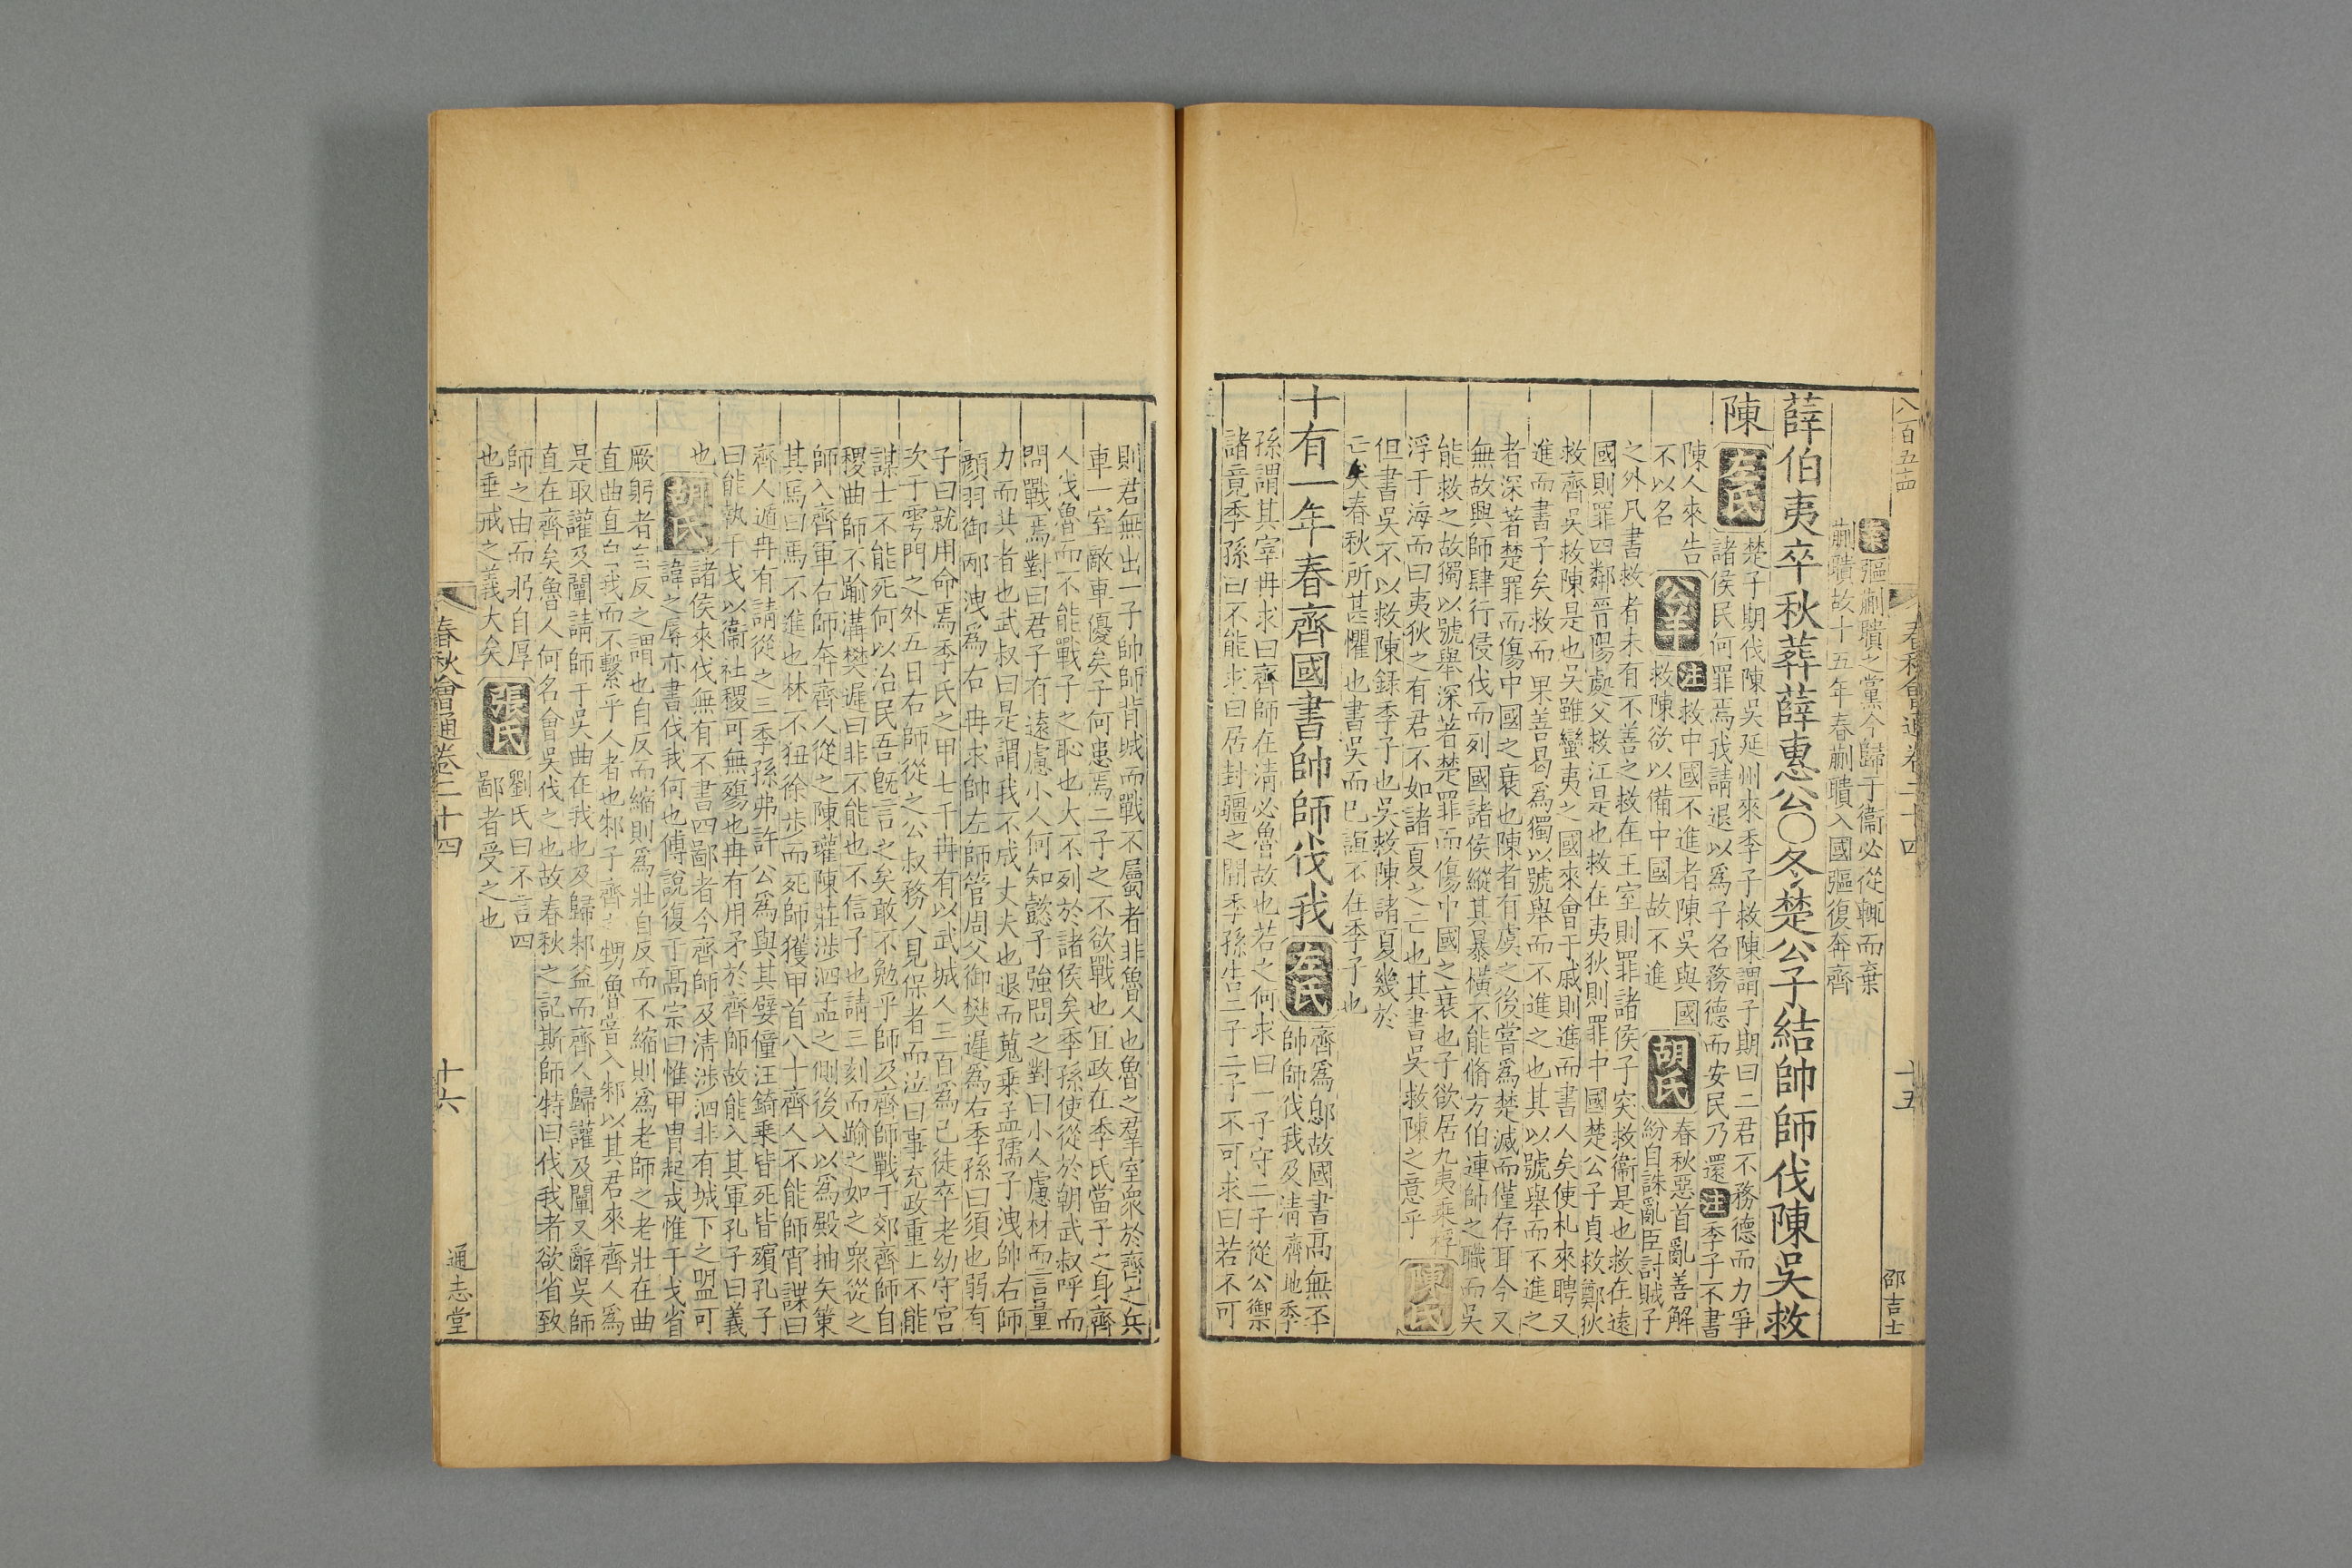 八百五十四
春秋會通卷二十四
十五
邵吉士
案彄蒯聵之黨今歸于衞必從輒而棄
蒯聵故十五年春蒯聵入國彄復奔齊
薛伯夷卒秋葬薛惠公〇冬楚公子結帥師伐陳吳救
陳
左氏
楚子期伐陳吳延州來季子救陳謂子期曰二君不務德而力爭
諸侯民何罪焉我請退以爲子名務德而安民乃還注季子不書
陳人來告
不以名
公羊
注救中國不進者陳吳與國
救陳欲以備中國故不進
胡氏
春秋惡首亂善解
紛自誅亂臣討賊子
之外凡書救者未有不善之救在王室則罪諸侯子突救衞是也救在遠
國則罪四鄰晉陽處父救江是也救在夷狄則罪中國楚公子貞救鄭狄
救齊吳救陳是也吳雖蠻夷之國來會于戚則進而書人矣使札來聘又
進而書子矣救而果善曷爲獨以號舉而不進之也其以號舉而不進之
者深著楚罪而傷中國之衰也陳者有虞之後嘗爲楚滅而僅存耳今又
無故興師肆行侵伐而列國諸侯縱其暴橫不能脩方伯連帥之職而吳
能救之故獨以號舉深著楚罪而傷中國之衰也子欲居九夷乘桴
浮于海而曰夷狄之有君不如諸夏之亡也其書吳救陳之意乎
陳氏
但書吳不以救陳錄季子也吳救陳諸夏幾於
亡矣春秋所甚懼也書吳而已誼不在季子也
十有一年春齊國書帥師伐我
左氏
齊爲鄎故國書高無㔻
帥師伐我及清齊地季
孫謂其宰冉求曰齊師在清必魯故也若之何求曰一子守二子從公禦
諸竟季孫曰不能求曰居封疆之閒季孫告二子二子不可求曰若不可
則君無出一子帥師背城而戰不屬者非魯人也魯之羣室衆於齊之兵
車一室敵車優矣子何患焉二子之不欲戰也宜政在季氏當子之身齊
人伐魯而不能戰子之恥也大不列於諸侯矣季孫使從於朝武叔呼而
問戰焉對曰君子有遠慮小人何知懿子強問之對曰小人慮材而言量
力而共者也武叔曰是謂我不成丈夫也退而蒐乘孟孺子洩帥右師
顔羽御邴洩爲右冉求帥左師管周父御樊遲爲右季孫曰須也弱有
子曰就用命焉季氏之甲七千冉有以武城人三百爲己徒卒老幼守宮
次于雩門之外五日右師從之公叔務人見保者而泣曰事充政重上不能
謀士不能死何以治民吾旣言之矣敢不勉乎師及齊師戰于郊齊師自
稷曲師不踰溝樊遲曰非不能也不信子也請三刻而踰之如之衆從之
師入齊軍右師奔齊人從之陳瓘陳莊涉泗孟之側後入以爲殿抽矢策
其馬曰馬不進也林不狃徐步而死師獲甲首八十齊人不能師宵諜曰
齊人遁冉有請從之三季孫弗許公爲與其嬖僮汪錡乘皆死皆殯孔子
曰能執干戈以衞社稷可無殤也冉有用矛於齊師故能入其軍孔子曰義
也
胡氏
諸侯來伐無有不書四鄙者今齊師及清涉泗非有城下之盟可
諱之辱亦書伐我何也傅說復于高宗曰惟甲冑起戎惟干戈省
厥躬者言反之謂也自反而縮則爲壯自反而不縮則爲老師之老壯在曲
直曲直自我而不繫乎人者也邾子齊之甥魯嘗入邾以其君來齊人爲
是取讙及闡請師于吳曲在我也及歸邾益而齊人歸讙及闡又辭吳師
直在齊矣魯人何名會吳伐之也故春秋之記斯師特曰伐我者欲省致
師之由而躬自厚
也垂戒之義大矣
張氏
劉氏曰不言四
鄙者受之也
春秋會通卷二十四
十六
通志堂